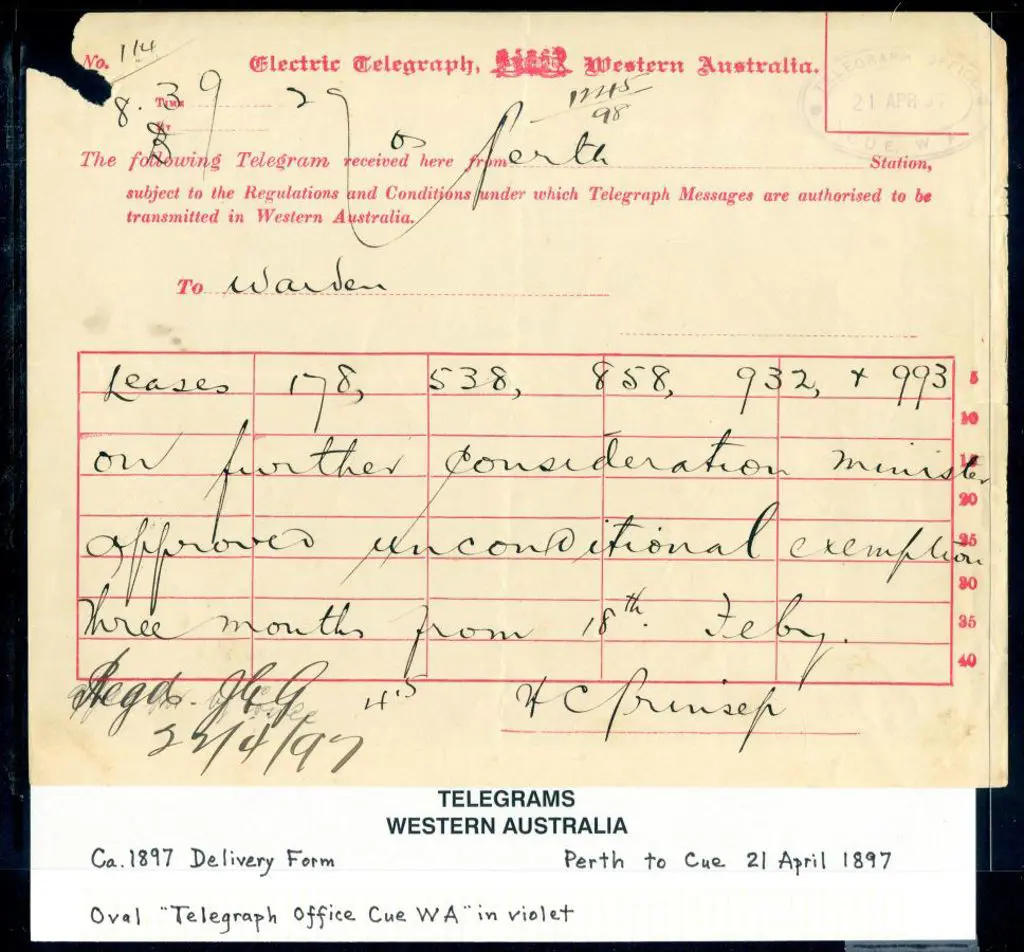 No. 114
Electric Telegraph, Western Australia.
8.39 Time 29
By
1245
98
TELEGRAPH OFFICE
21 APR 97
CUE, W.A.
The following Telegram received here from Perth Station,
subject to the Regulations and Conditions under which Telegraph Messages are authorised to be
transmitted in Western Australia.
To Warden
Leases 178, 538, 858, 932, + 993 5
10
on further consideration minister 15
20
approved unconditional exemption 25
30
three months from 18th. Feby. 35
40
Regd. 4.5 H C Prinsep
22/4/97
TELEGRAMS
WESTERN AUSTRALIA
Ca. 1897 Delivery Form Perth to Cue 21 April 1897
Oval "Telegraph Office Cue WA" in violet